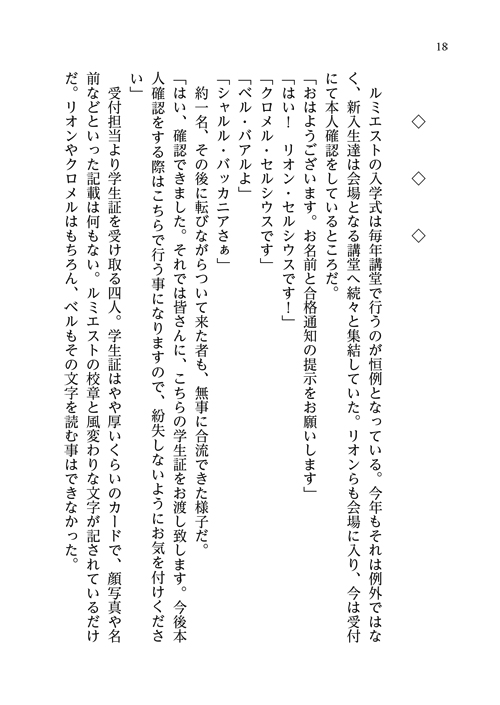 18
◇　◇　◇
　ルミエストの入学式は毎年講堂で行うのが恒例となっている。今年もそれは例外ではな
く、新入生達は会場となる講堂へ続々と集結していた。リオンらも会場に入り、今は受付
にて本人確認をしているところだ。
「おはようございます。お名前と合格通知の提示をお願いします」
「はい！　リオン・セルシウスです！」
「クロメル・セルシウスです」
「ベル・バアルよ」
「シャルル・バッカニアさぁ」
　約一名、その後に転びながらついて来た者も、無事に合流できた様子だ。
「はい、確認できました。それでは皆さんに、こちらの学生証をお渡し致します。今後本
人確認をする際はこちらで行う事になりますので、紛失しないようにお気を付けくださ
い」
　受付担当より学生証を受け取る四人。学生証はやや厚いくらいのカードで、顔写真や名
前などといった記載は何もない。ルミエストの校章と風変わりな文字が記されているだけ
だ。リオンやクロメルはもちろん、ベルもその文字を読む事はできなかった。